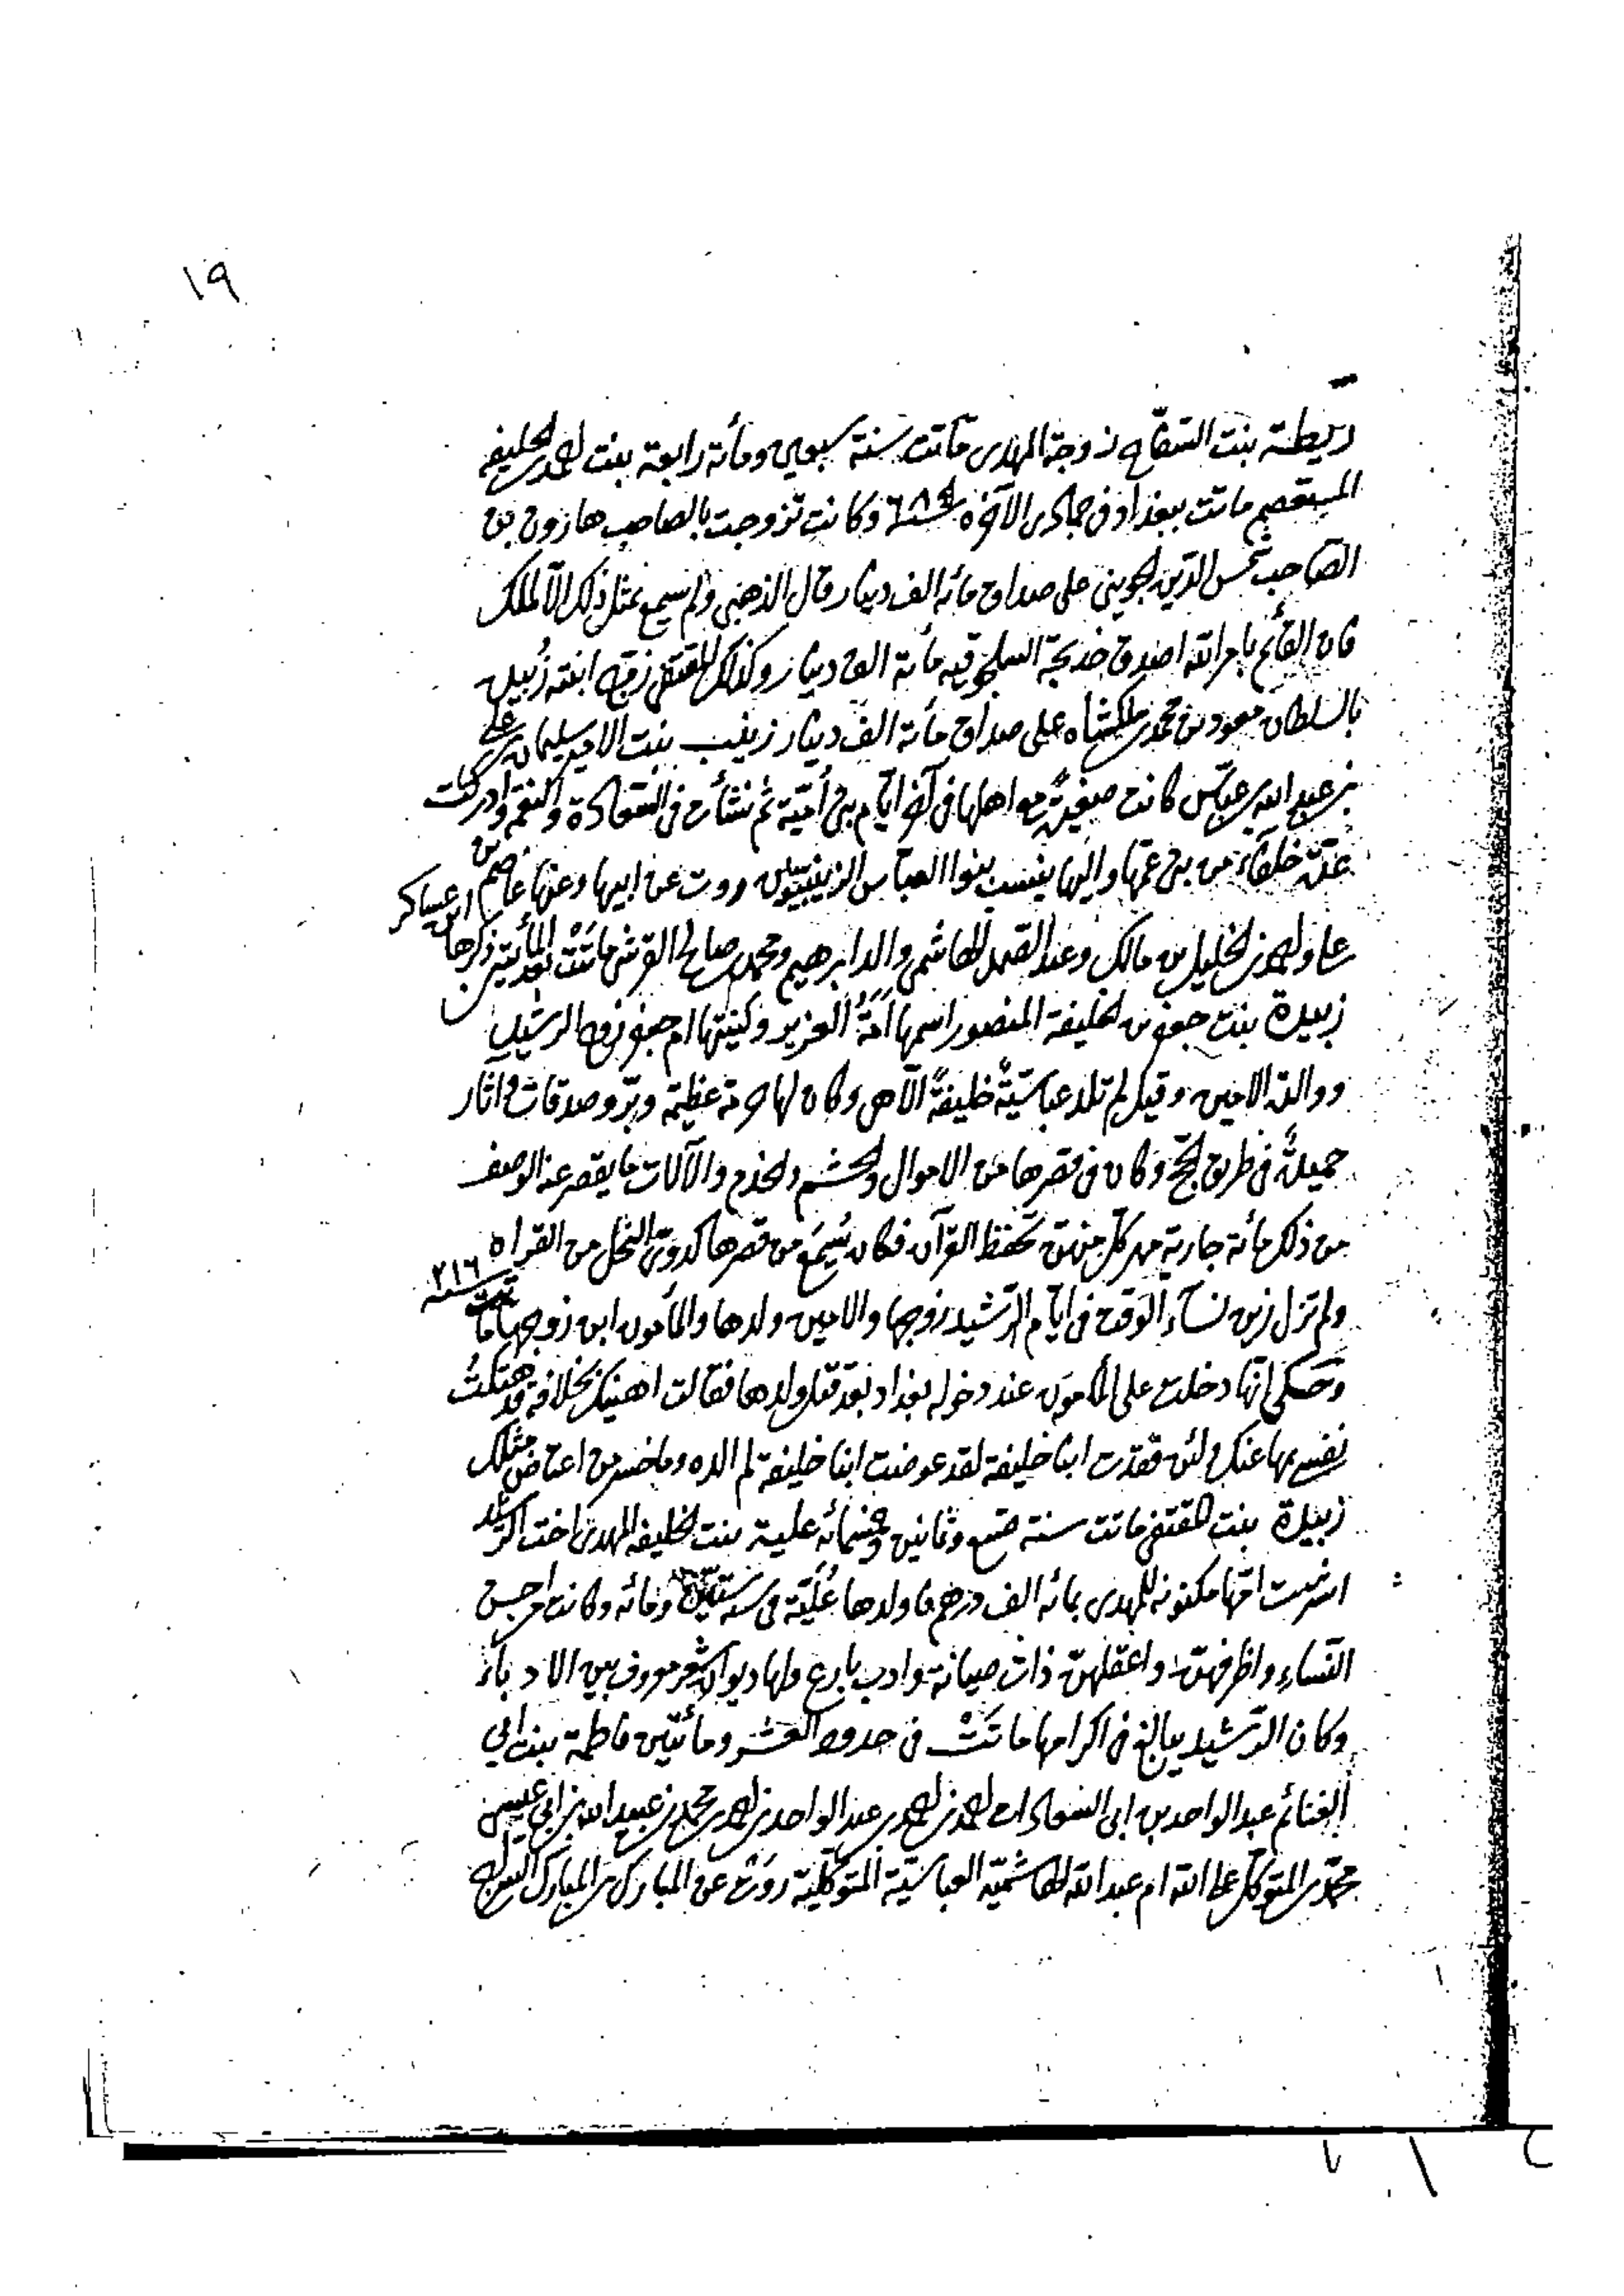 ١٩
ريطة بنت السفاح زوجة المهدى ماتت سنة سبعين ومأئة رابعة بنت احمد بن الخليفه
المستعصم ماتت ببغداد فى جمادى الآخره وكانت تزوجت بالصاحب هارون بن
الصاحب شمس الدين الجوينى على صداق مائه الف دينار قال الذهبى ولم يسمع بمثل ذلك الا لملك
فان القائم بامر الله اصدق خديجة السلجوقيه مأئة الف دينار وكذلك المقتفى زوج ابنته زبيدة
بالسلطان مسعود بن محمد بن ملكشاه على صداق مأئة الف دينار زينب بنت الامير سليمان بن على
بن عبد الله بن عباس كانت صغيرة مع اهلها فى آخر ايام بنى أمية ثم نشأت فى السعادة والنعم وادركت
عدّة خلفاء من بنى عمها واليها ينسب بنوا العباس الزينبيون روت عن ابيها وعنها عاصم بن
على واحمد بن الخليل بن مالك وعبد الصمد الهاشمى والد ابرهيم ومحمد بن صالح القرشى ماتت بعد المأئتين ذكرها ابن عساكر
زبيدة بنت جعفر بن الخليفة المنصور اسمها أمة العزيز وكنيتها ام جعفر زوج الرشيد
ووالدة الامين وقيل لم تلد عباسية خليفة الا هى وكان لها حرمة عظيمة وبرّ وصدقات واثار
جميلة فى طريق الحج وكان فى قصرها من الاموال والحشم والخدم والآلات ما يقصر عنه الوصف
من ذلك مائة جارية كل منهن تحفظ القرآن فكان يُسمَع من قصرها كدوىّ النحل من القراه
ولم تزل زين نساء الوقت فى ايام الرشيد زوجها والامين ولدها والمأمون ابن زوجها ماتت سنه ٢١٦
وحكى انها دخلت على المأمون عند دخوله بغداد بعد قتل ولدها فقالت اهنيك بخلافة قد هنّأت
نفسى بها عنك ولئن فقدت ابنا خليفة لقد عوضت ابنا خليفة لم الده وما خسر من اعتاض مثلك
زبيدة بنت المقتفى ماتت سنة تسع وثمانين وخمسمائه علية بنت الخليفه المهدى اخت الرشيد
اشتريت امها مكنونه للمهدى بمائه الف درهم فاولدها عُليّة فى سنة ستين ومائه وكانت من احسن
النساء واظرفهن واعقلهن ذات صيانة وادب بارع ولها ديوان شعر معروف بين الادباء
وكان الرشيد يبالغ فى اكرامها ماتت فى حدود العشر ومائتين فاطمة بنت ابي
الغنائم عبد الواحد بن ابى السعادات احمد بن احمد بن عبد الواحد بن احمد بن محمد بن عبيد الله بن ابي عيسى
محمد بن المتوكل على الله ام عبد الله الهاشمية العباسيّة المتوكلية روت عن المبارك بن المبارك السراج